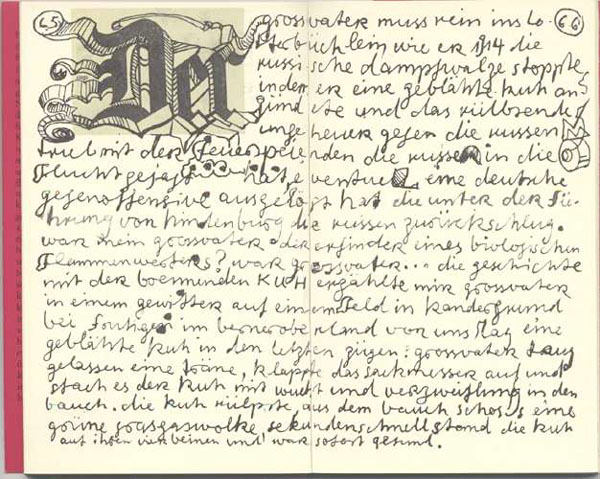 65 66
Der grossvater muss rein ins lo-
tterbüchlein wie er 1914 die
russische dampfwalze stoppte
indem er eine geblähte kuh an
zündete und das rülpsende
ungeheuer gegen die russen
trieb mit der feuerspeienden die russen in die
flucht gejagt hatte eventuell eine deutsche
gegenoffensive ausgelöst hat die unter der fü-
hrung von hindenburg die russen zurückschlug.
war mein grossvater der erfinder eines biologischen
flammenwerfers? war grossvater... die geschichte
mit der brennenden KUH erzählte mir grossvater
in einem gewitter auf einem feld in kandergrund
bei frutigen im berneroberland vor uns lag eine
geblähte kuh in den letzten zügen: grossvater
gelassen eine träne, klappte das sackmesser auf und
stach es der kuh mit wucht und verzweiflung in den
bauch. die kuh rülpste, aus dem bauch schoss eine
grüne grasgaswolke sekundenschnell stand die kuh
auf ihren vier beinen und war sofort gesund.